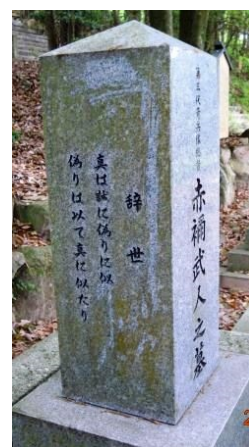 第三代奇兵隊総管
赤禰武人之墓
辞世
真は誠に偽りに似
偽りは以て真に似たり